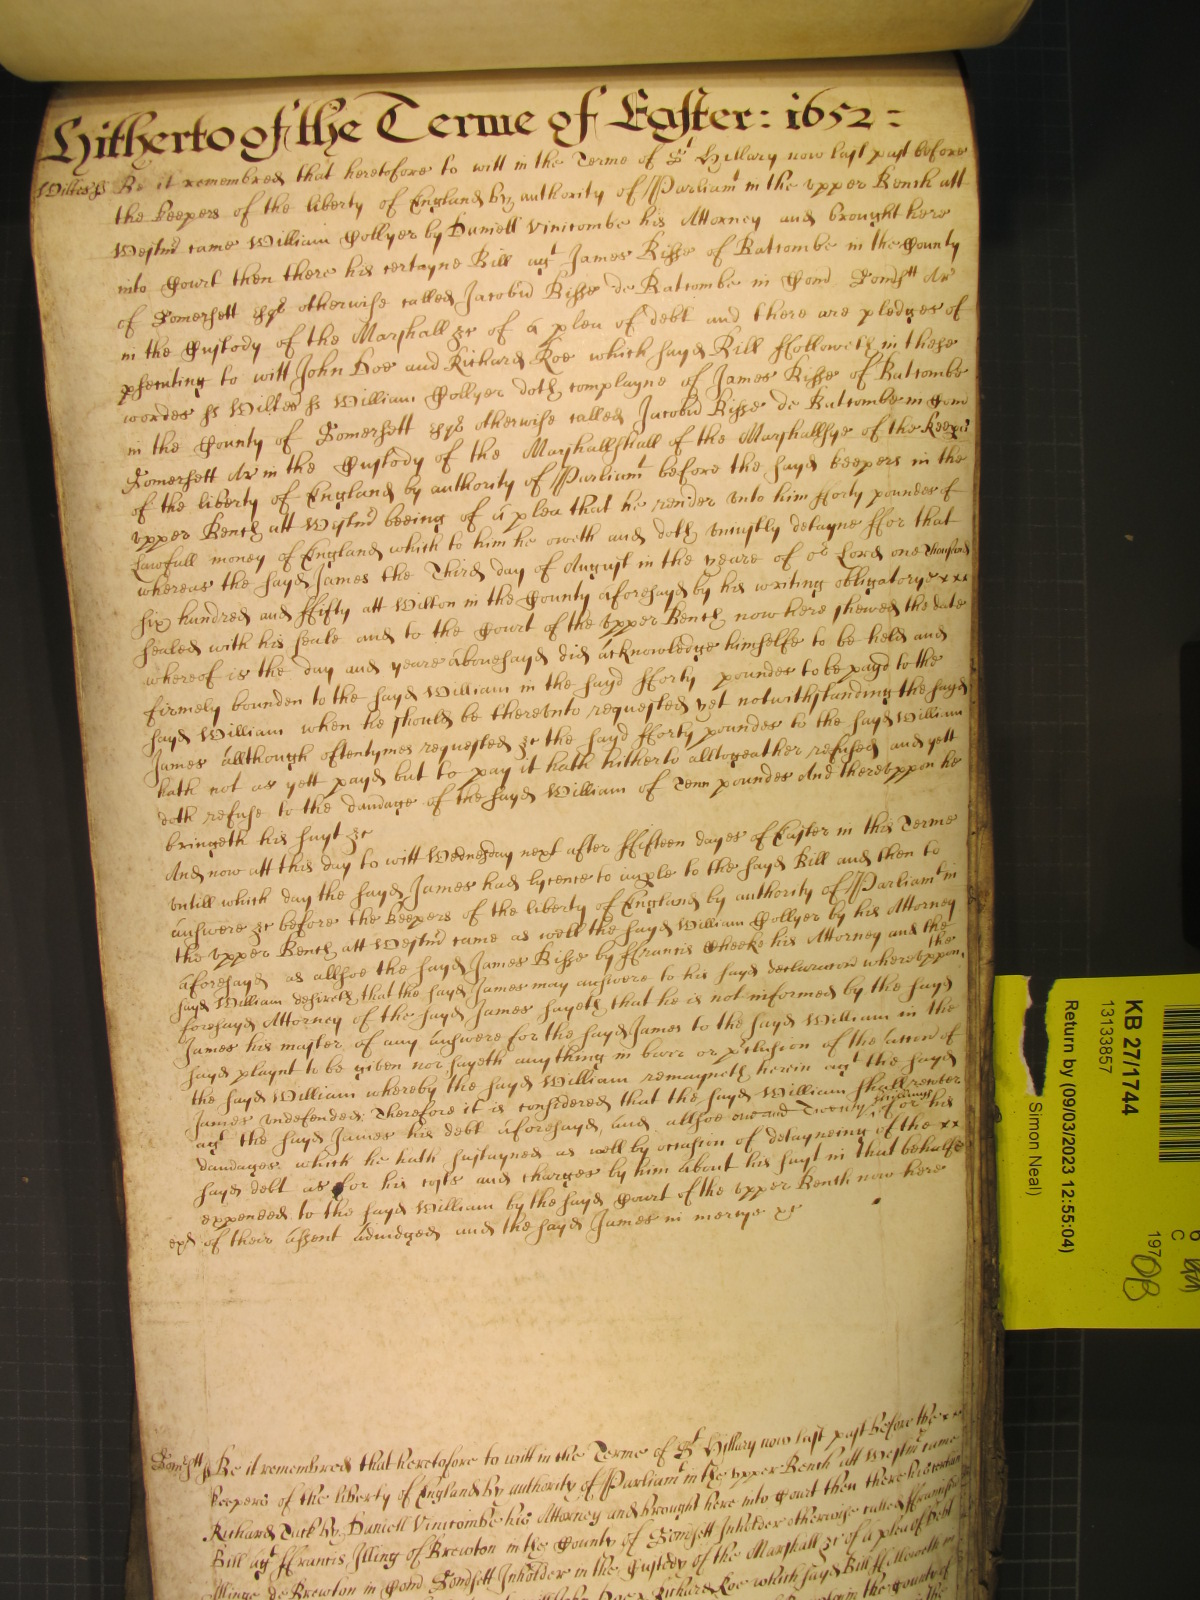 Hitherto of the Terme of Easter: 1652:
Wiltes ss Be it remembred that heretofore to witt in the Terme of St Hillary now last past before
the keepers of the liberty of England by authority of Parliamt in the upper Bench att
Westmr came William Collyer by Daniell Vinicombe his Attorney and brought here
into Court then there his certayne Bill agt James Bisse of Batcombe in the County
of Somersett Esqr otherwise called Jacobus Bisse de Batcombe in Com Somsett Ar
in the Custody of the Marshall &c of a plea of debt and there are pledges of
psecuting to witt John Doe and Richard Roe which sayd Bill ffolloweth in these
wordes ss Wiltes ss William Collyer doth complayne of James Bisse of Batcombe
in the County of Somersett Esqr otherwise called Jacobus Bisse de Batcombe in Com
Somersett Ar in the Custody of the Marshallshall of the Marshallsye of the keeprs
of the liberty of England by authority of Parliamt before the sayd keepers in the
upper Bench att Westmr beeing of a plea that he render unto him fforty poundes of
Lawfull money of England which to him he oweth and doth uniustly detayne ffor that
whereas the sayd James the Third day of August in the yeare of or Lord one Thousand
six hundred and ffifty att Wilton in the County aforesayd by his writing obligatory xxx
sealed with his seale and to the Court of the Upper Bench now here shewed the date
whereof is the day and yeare abovesayd did acknowledge himselfe to be held and
firmely bounden to the sayd William in the sayd fforty poundes to be payd to the
sayd William when he should be thereunto requested yet notwithstanding the sayd
James allthough oftentymes requested &c the sayd fforty poundes to the sayd William
hath not as yett payd but to pay it hath hitherto alltogeather refused and yett
doth refuse to the damage of the sayd William of Tenn poundes And thereuppon he
bringeth his suyt &c
And now att this day to witt Wednesday next after ffifteen dayes of Easter in this Terme
untill which day the sayd James had lycence to imple to the sayd Bill and then to
answere &c before the keepers of the liberty of England by authority of Parliamt in
the Upper Bench att Westmr came as well the sayd William Collyer by his Attorney
aforesayd as allsoe the sayd James Bisse by ffrancis Cheeke his Attorney and the
sayd William desireth that the sayd James may answere to his sayd declaracon whereuppon the
foresayd Attorney of the sayd James sayeth that he is not informed by the sayd
James his master of any answere for the sayd James to the sayd William in the
sayd playnt to be given nor sayeth anything in barr or pclusion of the accon of
the sayd William whereby the sayd William remayneth herein agt the sayd
James undefended Therefore it is considered that the sayd William shall recover
agt the sayd James his debt aforesayd and allsoe one and Twenty shillings for his
damages which he hath sustayned as well by occasion of detayneing of the xx
sayd debt as for his costs and charges by him about his suyt in that behalfe
expended to the sayd William by the sayd Court of the Upper Bench now here
exd of their assent adiudged and the sayd James in mercye &c
Somsett ss Be it remembred that heretofore to witt in the Terme of St Hillary now last past before the xx
keepers of the liberty of England by authority of Parliamt in the Upper Bench att Westmr came
Richard Tuck by Daniell Vinicombe his Attorney and brought here into Court then there his certain
Bill agt ffrancis Illing of Brewton in the County of Somsett Inholder otherwise called ffranciscus
Illinge de Brewton in Comd Somsett Inholder in the Custody of the Marshall &c of a plea of debt
John Doe Richard Roe which sayd Bill ffolloweth in
in the County of
KB 27/1744
13133857
Return by (09/03/2023 12:55:04)
Simon Neal)